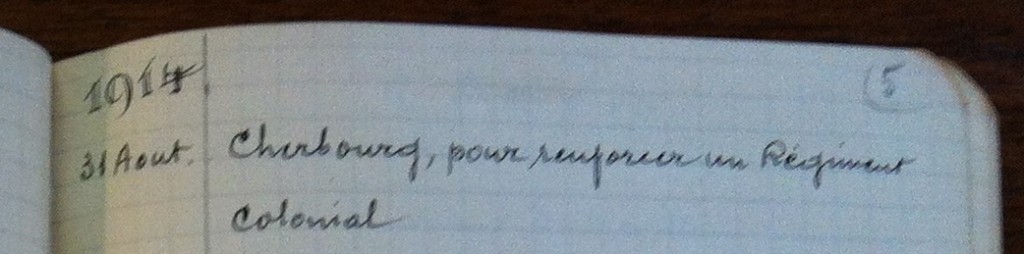 1914
(5
31 Aout. Cherbourg, pour renforcer un Régiment
Colonial